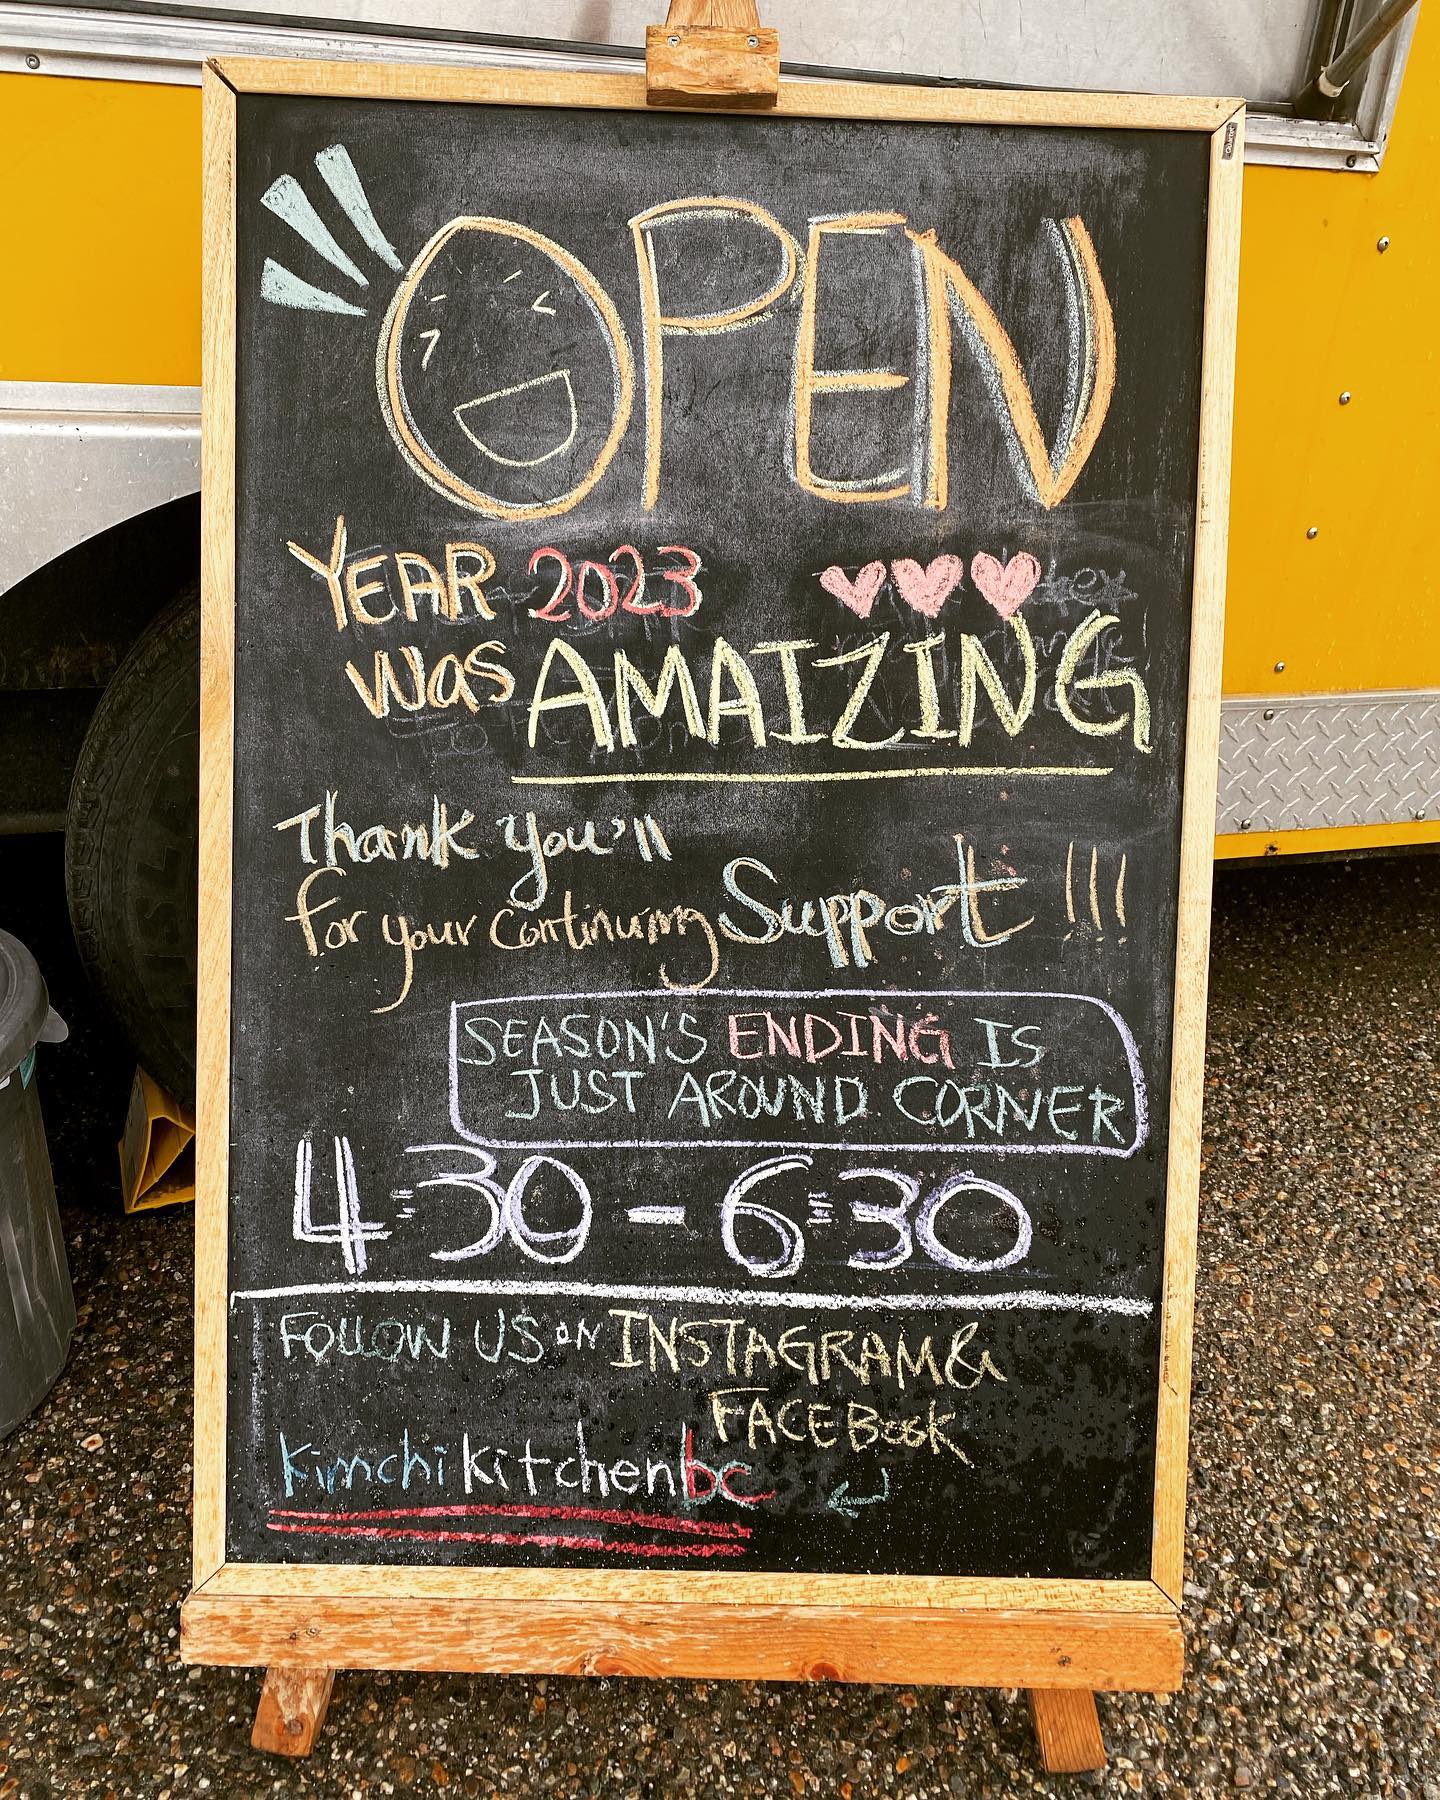 OPEN
YEAR 2023
was AMAIZING
Thank you'll
for your continuing Support !!!
SEASON'S ENDING IS
JUST AROUND CORNER
4:30 - 6:30
FOLLOW US ON INSTAGRAM &
FACEBOOK
kimchikitchenbc